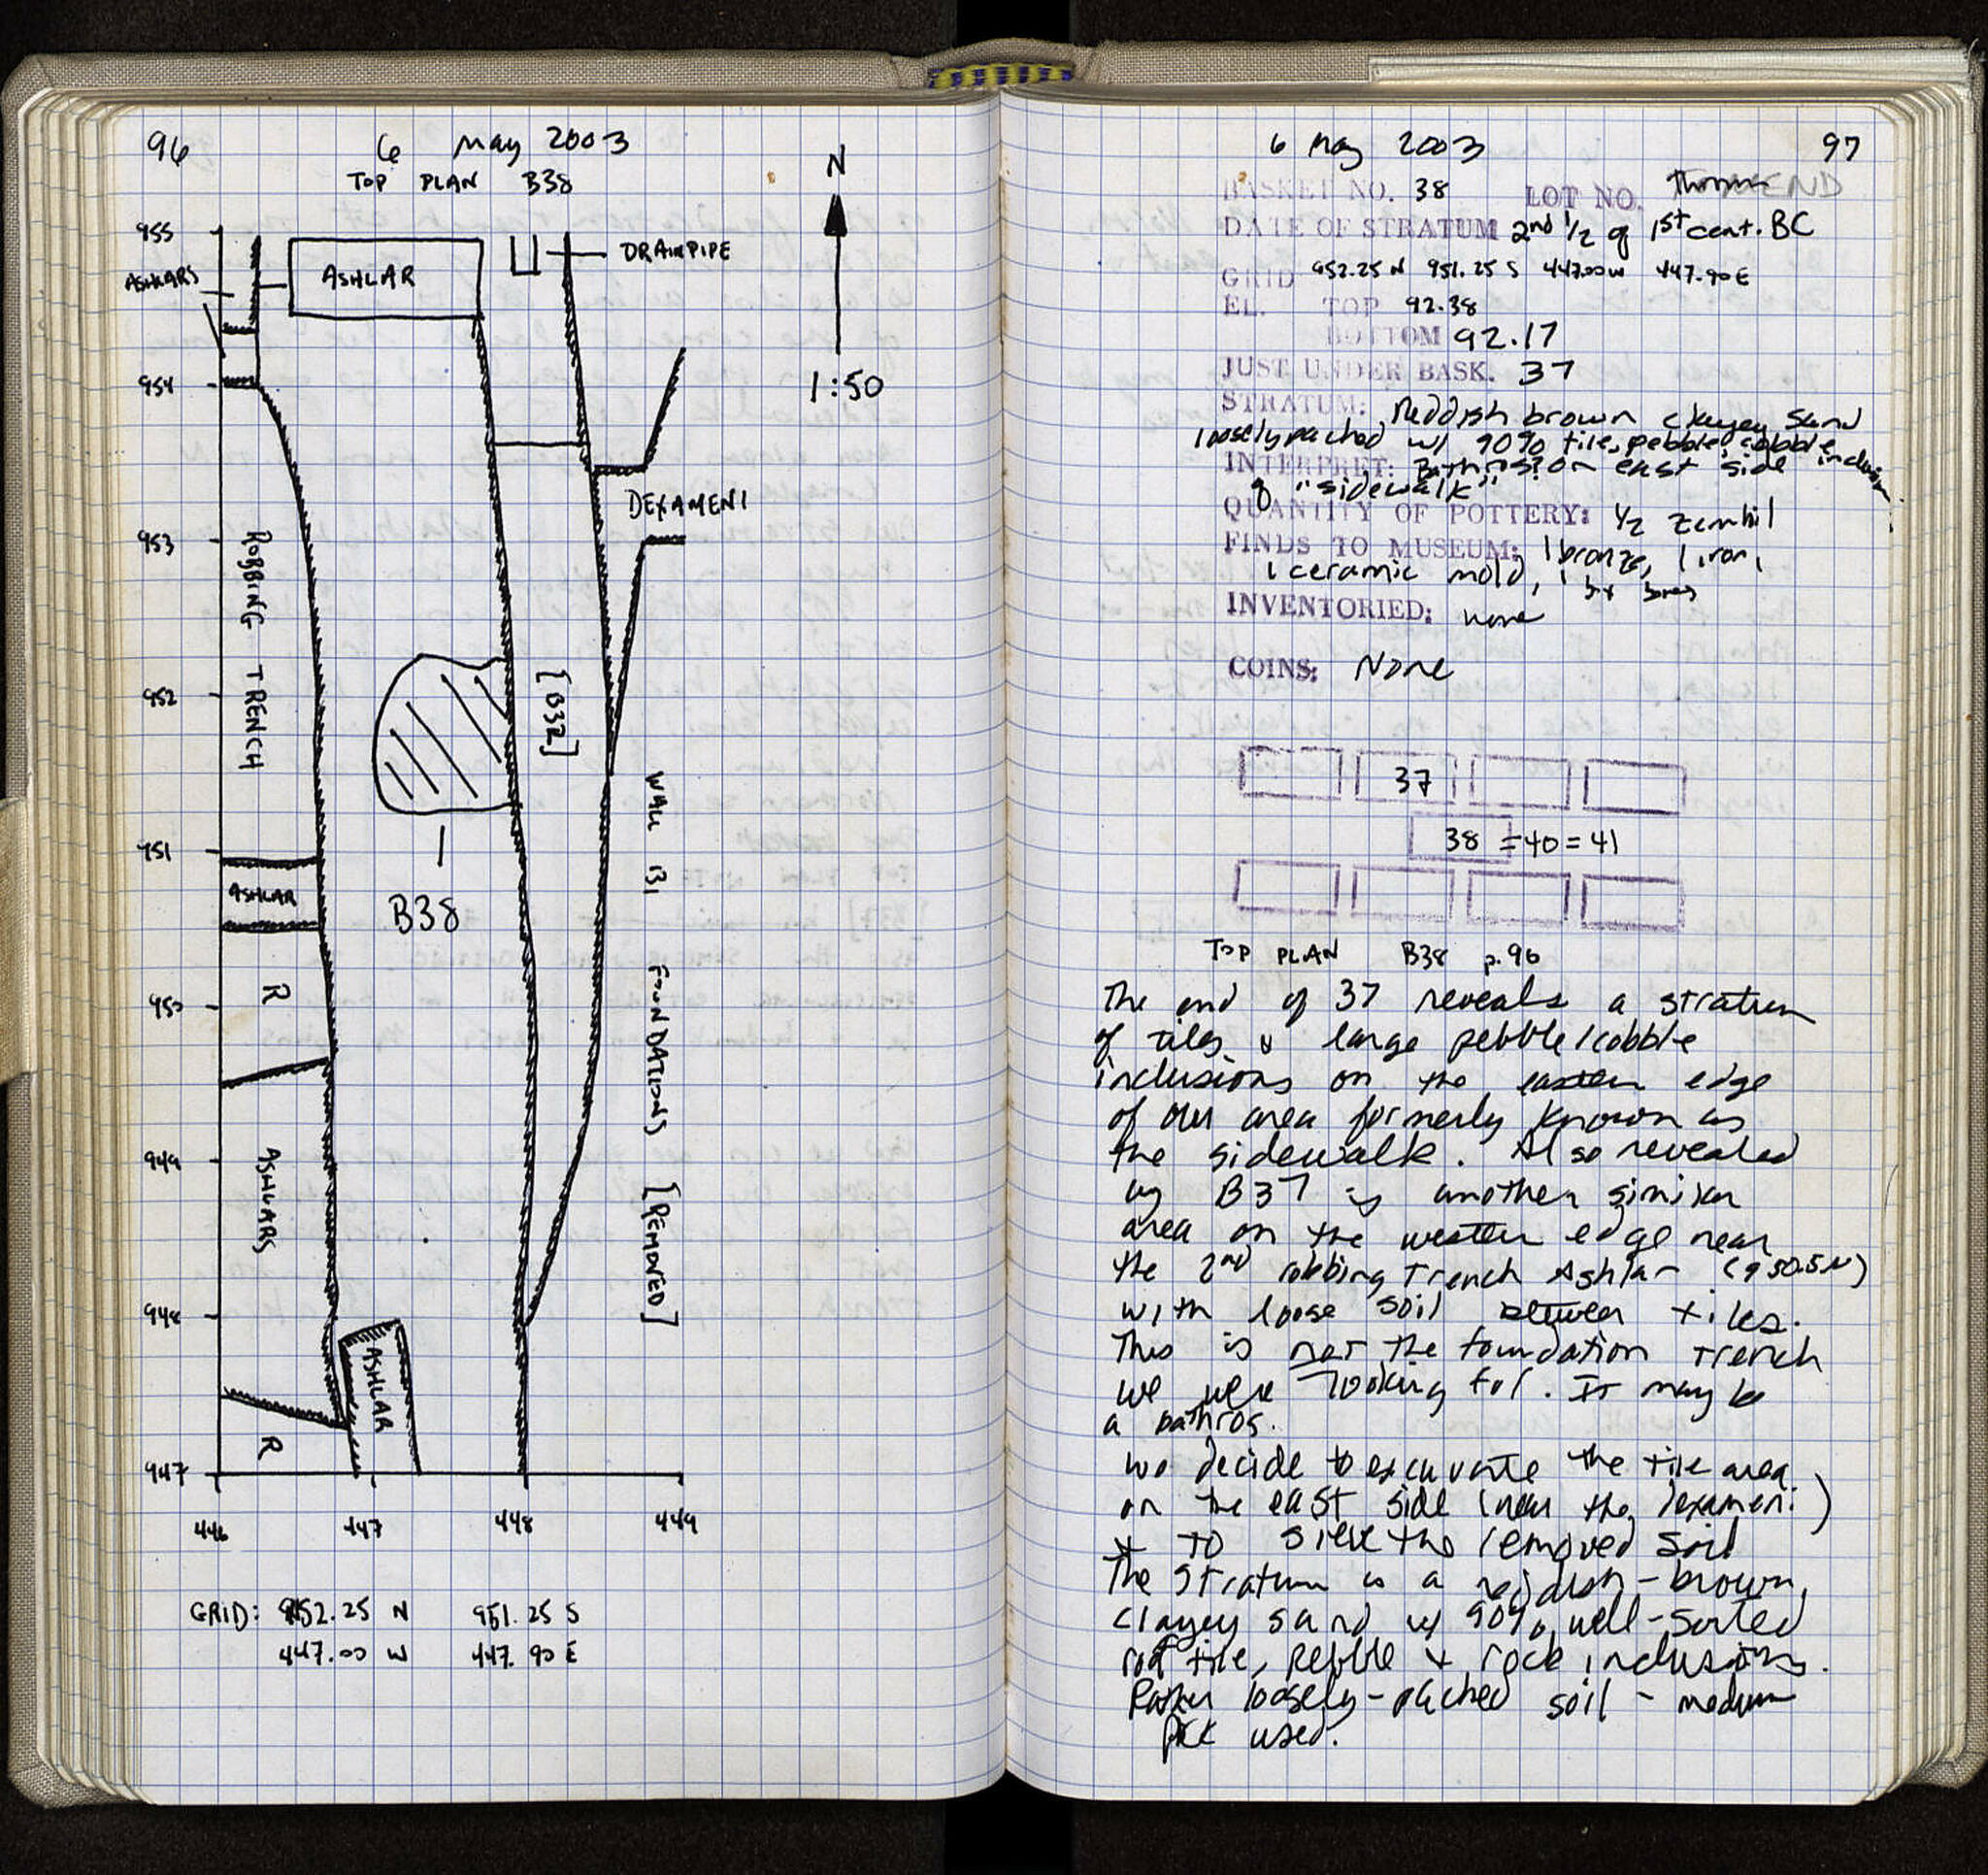 96
6 May 2003
TOP PLAN B38
N
1:50
955
954
953
952
951
950
949
948
947
446 447 448 449
ASHLARS
ASHLAR
DRAINPIPE
DEXAMENI
ROBBING TRENCH
[B32]
WALL B1 FOUNDATIONS [REMOVED]
B38
ASHLAR
R
ASHLARS
ASHLAR
R
GRID: 952.25 N 951.25 S
447.00 W 447.90 E
6 May 2003
97
BASKET NO. 38 LOT NO.
DATE OF STRATUM 2nd 1/2 of 1st cent. BC
GRID 952.25 N 951.25 S 447.00 W 447.90 E
EL. TOP 92.38
BOTTOM 92.17
JUST UNDER BASK. 37
STRATUM: Reddish brown clayey sand
loosely packed w/ 90% tile, pebble, cobble inclusion
INTERPRET: Bothros? on east side
of "sidewalk"
QUANTITY OF POTTERY: 1/2 zembil
FINDS TO MUSEUM: 1 bronze, 1 iron,
1 ceramic mold, 1 bx bones
INVENTORIED: none
COINS: None
37
38 = 40 = 41
TOP PLAN B38 p. 96
The end of 37 reveals a stratum
of tiles & large pebble/cobble
inclusions on the eastern edge
of our area formerly known as
the sidewalk. Also revealed
by B37 is another similar
area on the western edge near
the 2nd robbing trench Ashlar (950.5 N)
with loose soil between tiles.
This is not the foundation trench
we were looking for. It may be
a bothros.
We decide to excavate the tile area
on the east side (near the dexameni)
+ to sieve the removed soil
The stratum is a reddish-brown,
clayey sand w/ 90% well-sorted
roof tile, pebble + rock inclusions.
Rather loosely-packed soil - medium
pick used.